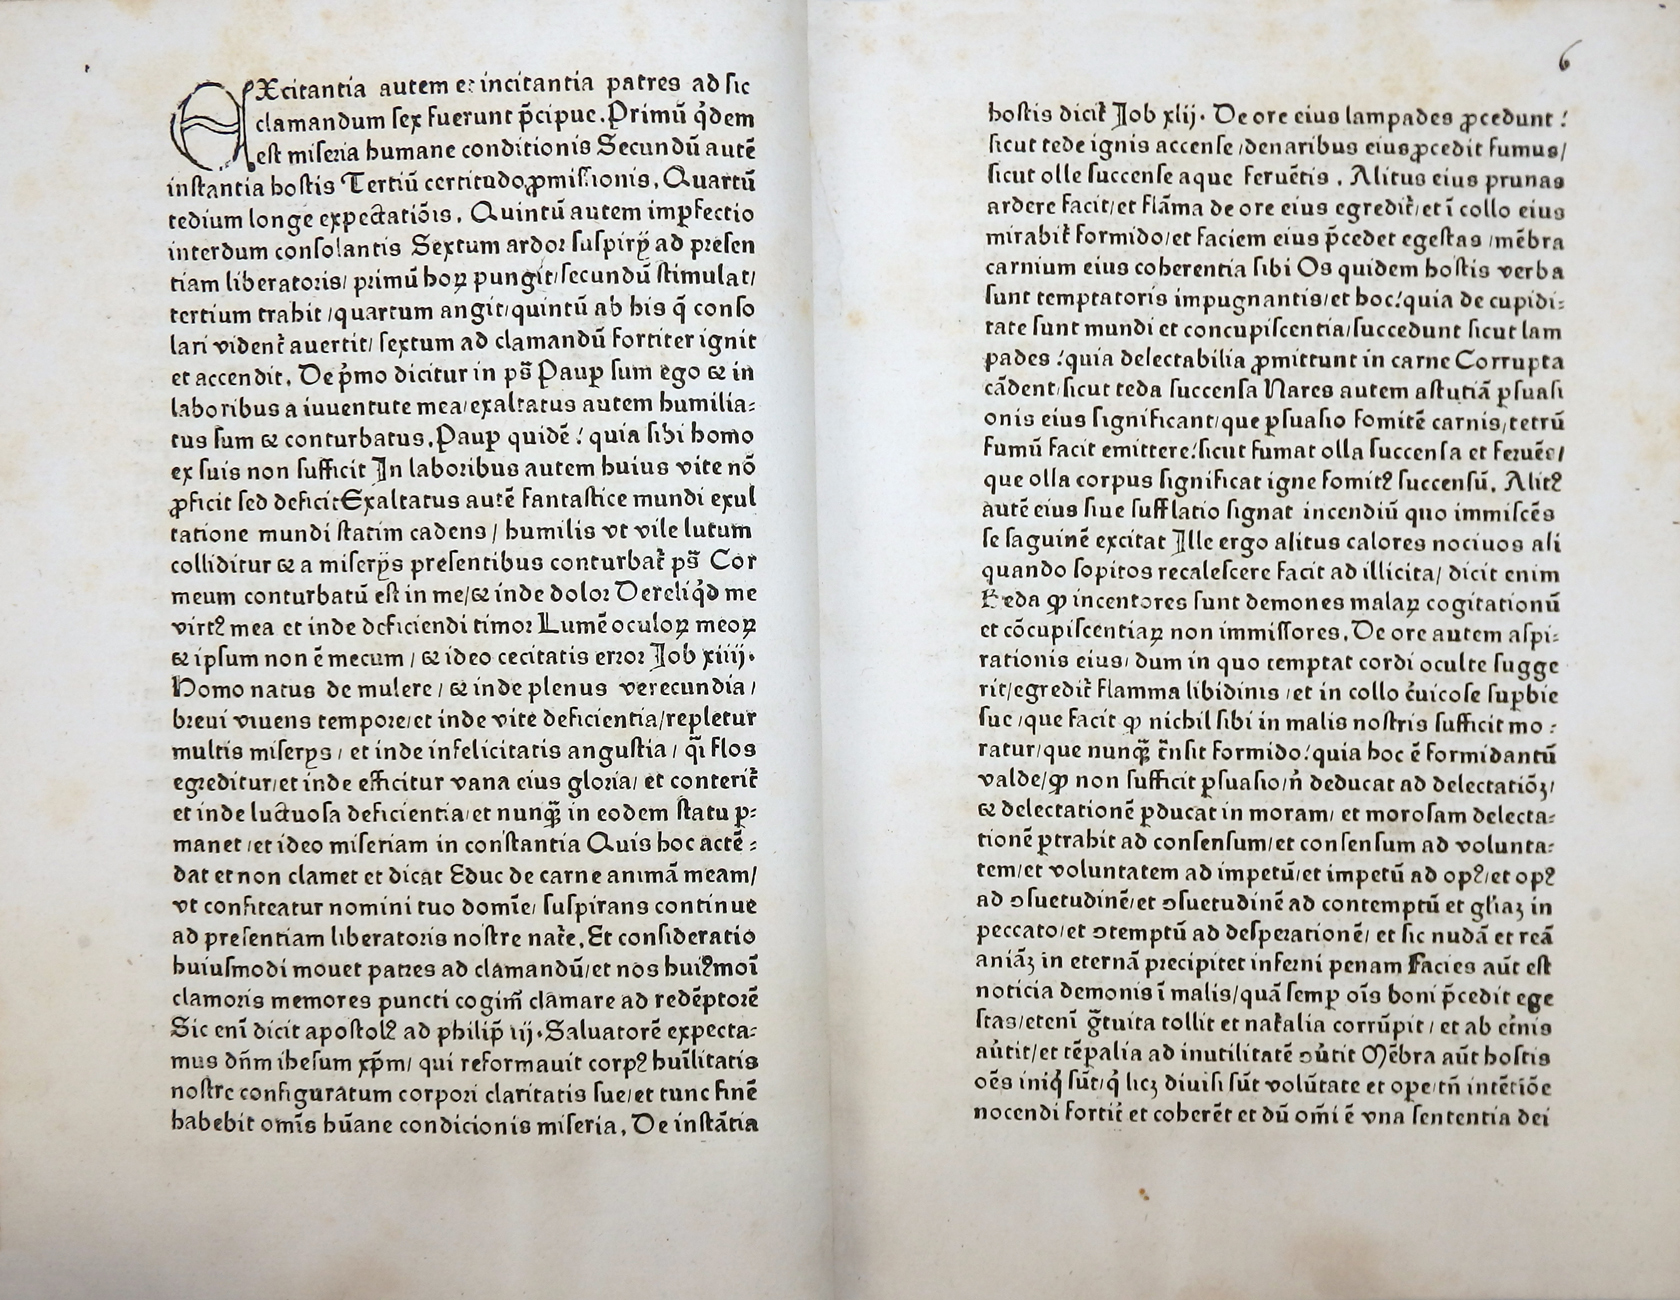 EXcitantia autem et incitantia patres ad sic
clamandum sex fuerunt p̄cipue. Primū q̇dem
est miseria humane conditionis Secundū autē
instantia hostis Tertiū certitudo ꝓmissionis. Quartū
tedium longe expectatiōis. Quintū autem imꝑfectio
interdum consolantis Sextum ardor suspirÿ ad presen
tiam liberatoris/ primū hoꝝ pungit/secundū stimulat/
tertium trahit /quartum angit/quintū ab his q̄ conso
lari videnť auertit/ sextum ad clamandū fortiter ignit
et accendit. De pͥmo dicitur in ps̄ Pauꝑ sum ego & in
laboribus a iuuentute mea/exaltatus autem humilia⸗
tus sum & conturbatus. Pauꝑ quidē : quia sibi homo
ex suis non sufficit In laboribus autem huius vite nō
ꝓficit sed deficit Exaltatus autē fantastice mundi exul
tatione mundi statim cadens / humilis vt vile lutum
colliditur & a miserÿs presentibus conturbať ps̄ Cor
meum conturbatū est in me/& inde dolor Dereliq̇d me
virtꝰ mea et inde deficiendi timor Lumē oculoꝝ meoꝝ
& ipsum non ē mecum / & ideo cecitatis error Job xiiij.
Homo natus de mulere / & inde plenus verecundia /
breui viuens tempore/et inde vite deficientia/repletur
multis miserÿs / et inde infelicitatis angustia / q̄i flos
egreditur/et inde efficitur vana eius gloria/ et conteriť
et inde luctuosa deficientia/et nunqͣ̄ in eodem statu ꝑ⸗
manet /et ideo miseriam in constantia Quis hoc actē ⸗
dat et non clamet et dicat Educ de carne animā meam/
vt confiteatur nomini tuo domīe/ suspirans continue
ad presentiam liberatoris nostre nat̄e. Et consideratio
huiusmodi mouet patres ad clamandū/et nos huiꝰmoī
clamoris memores puncti cogim̄ clamare ad redēptorē
Sic enī dicit apostolꝰ ad philip̄ iij. Saluatorē expecta⸗
mus dn̄m ihesum xp̄m/ qui reformauit corpꝰ huīlitatis
nostre configuratum corpori claritatis sue/et tunc finē
habebit omīs hūane condicionis miseria. De instātia
6
hostis diciť Job xlij. De ore eius lampades ꝓcedunt :
sicut tede ignis accense /denaribus eius ꝓcedit fumus/
sicut olle succense aque feruētis . Alitus eius prunas
ardere facit/et flāma de ore eius egrediť/et ī collo eius
mirabiť formido/et faciem eius p̄cedet egestas /mēbra
carnium eius coherentia sibi Os quidem hostis verba
sunt temptatoris impugnantis/et hoc:quia de cupidi⸗
tate sunt mundi et concupiscentia/succedunt sicut lam
pades :quia delectabilia ꝓmittunt in carne Corrupta
cādent/sicut teda succensa Nares autem astutiā ꝑsuasi
onis eius significant/que ꝑsuasio fomitē carnis/tetrū
fumū facit emittere:sicut fumat olla succensa et feruēs/
que olla corpus significat igne fomitꝰ succensū. Alitꝰ
autē eius siue sufflatio signat incendiū quo immiscēs
se saguinē excitat Ille ergo alitus calores nociuos ali
quando sopitos recalescere facit ad illicita/ dicit enim
Beda ꝙ incentores sunt demones malaꝝ cogitationū
et cōcupiscentiaꝝ non immissores. De ore autem aspi⸗
rationis eius/ dum in quo temptat cordi oculte sugge
rit/egrediť flamma libidinis /et in collo c̓uicose suꝑbie
sue /que facit ꝙ nichil sibi in malis nostris sufficit mo ⸗
ratur/que nunqͣ̄ t̄nsit formido:quia hoc ē formidantū
valde/ꝙ non sufficit ꝑsuasio/n̓ deducat ad delectatiōʒ/
& delectationē ꝑducat in moram/ et morosam delecta⸗
tionē ꝑtrahit ad consensum/et consensum ad volunta⸗
tem/et voluntatem ad impetū/et impetū ad opꝰ/et opꝰ
ad ɔsuetudinē/et ɔsuetudinē ad contemptū et gl̓iaʒ in
peccato/et ɔtemptū ad desperationē/ et sic nudā et reā
aniāʒ in eternā precipitet inferni penam Facies aūt est
noticia demonis ī malis/quā semꝑ oīs boni p̄cedit ege
stas/etenī gͣtuita tollit et naťalia corrūpit / et ab et̓nis
au̓tit/et tēꝑalia ad inutilitatē ɔu̓tit Mēbra aūt hostis
oēs iniq̇ sūt/q̇ licʒ diuisi sūt volūtate et ope/tn̄ intētiōe
nocendi fortiť et coherēt et dū om̄i ē vna sententia dei